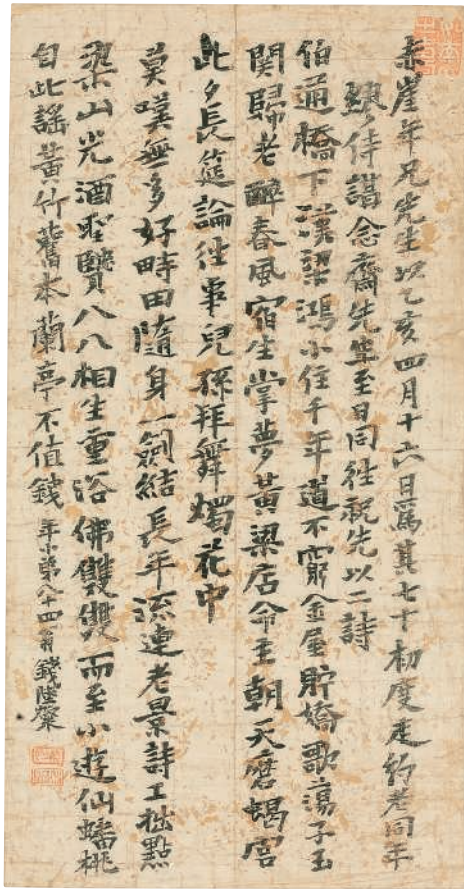 素崖年兄先生以乙亥四月十六日為其七十初度走約老同年
暨侍講念齋先生至日同往祝先以二詩
伯通橋下漢梁鴻小住千年道不窮金屋貯嬌歌蕩子玉
關歸老醉春風宿生掌夢黃粱店命主朝天磨蝎宮
此夕長筵論往事兒孫拜舞燭花中
莫嘆無多好時田隨身一劍結長年流連老景詩工拙點
染山光酒聖賢八八相生重浴佛雙雙而至小遊仙蟠桃
自此謠黃竹舊本蘭亭不值錢 年小弟八十四翁錢陸燦